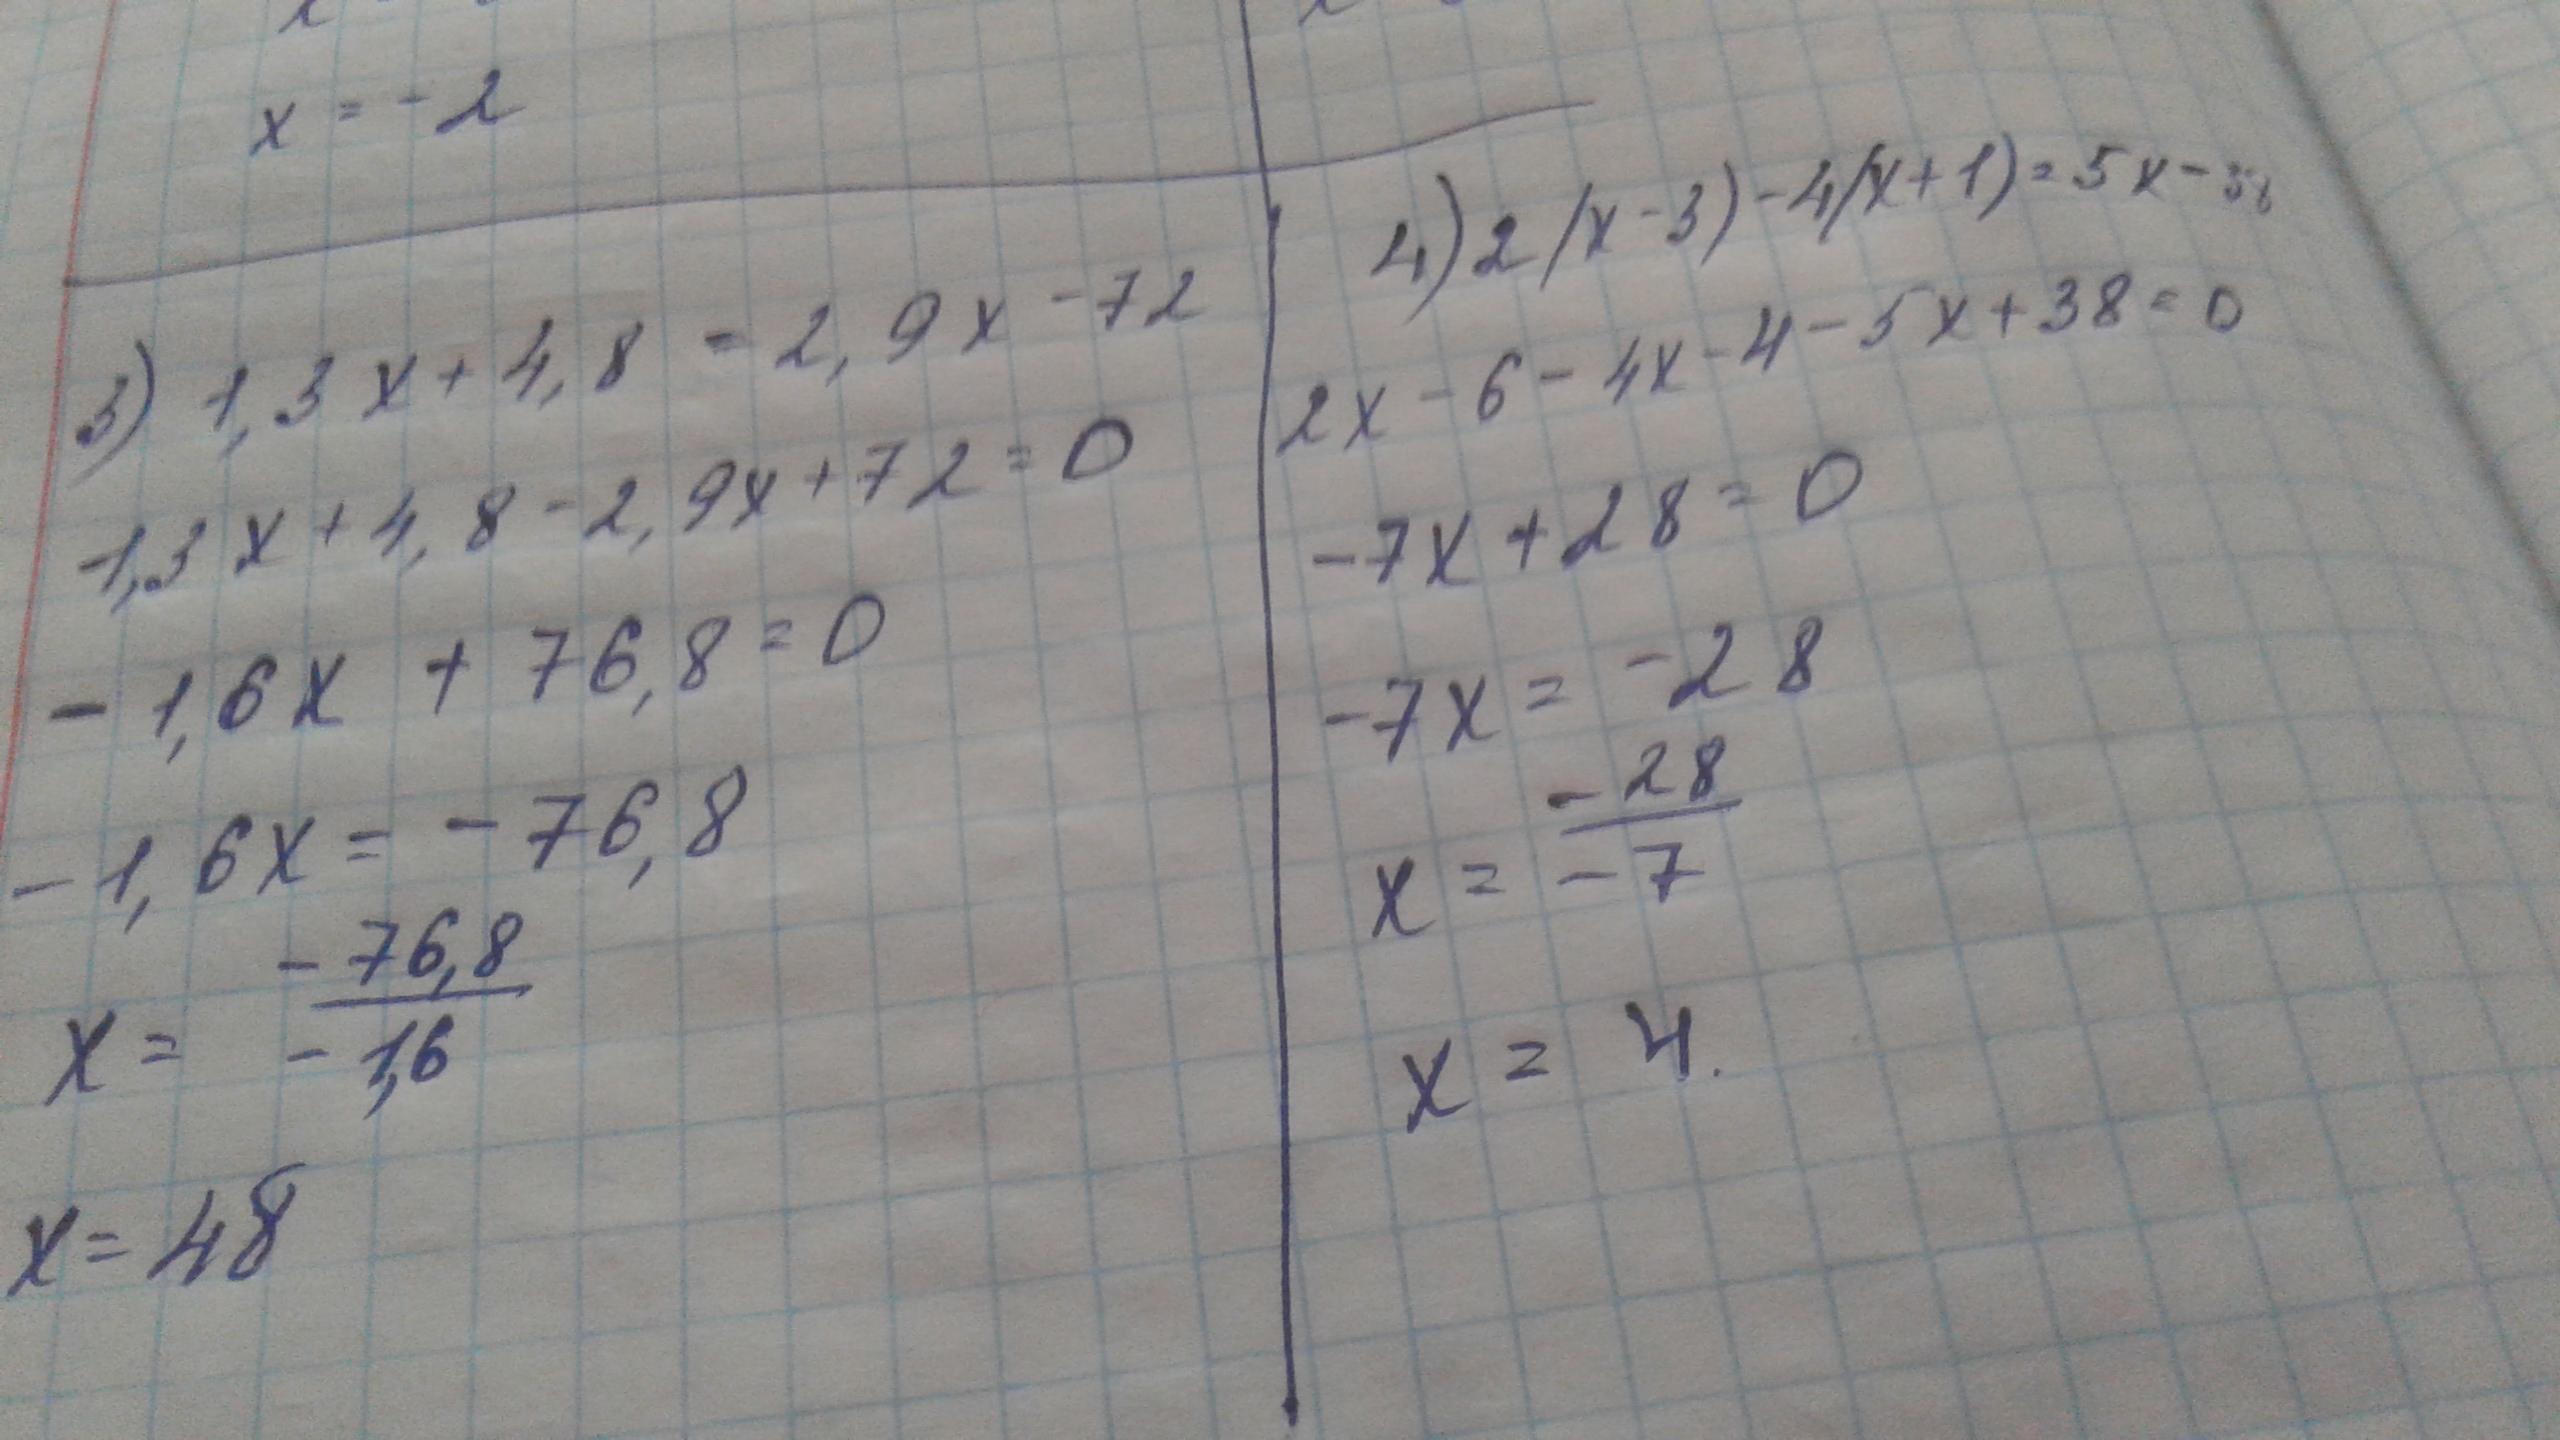 x = -2
3) 1,3x + 4,8 = 2,9x - 72
1,3x + 4,8 - 2,9x + 72 = 0
- 1,6x + 76,8 = 0
- 1,6x = - 76,8
x = - 76,8 / - 1,6
x = 48
4) 2(x - 3) - 4(x + 1) = 5x -
2x - 6 - 4x - 4 - 5x + 38 = 0
- 7x + 28 = 0
- 7x = - 28
x = - 28 / - 7
x = 4.